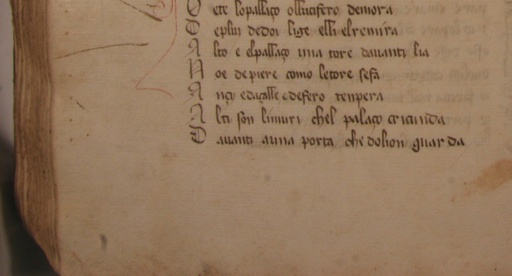 ete lo pallaço o llucifero demora
D e plui de doi lige elli el remira
A lto e el pallaço una tore davanti lia
N oe de piere como le tore se fa
A nço e daçalle e de fero tenpera
A lti son li muri chel palaço circunda
D avanti a una porta che do lion guarda